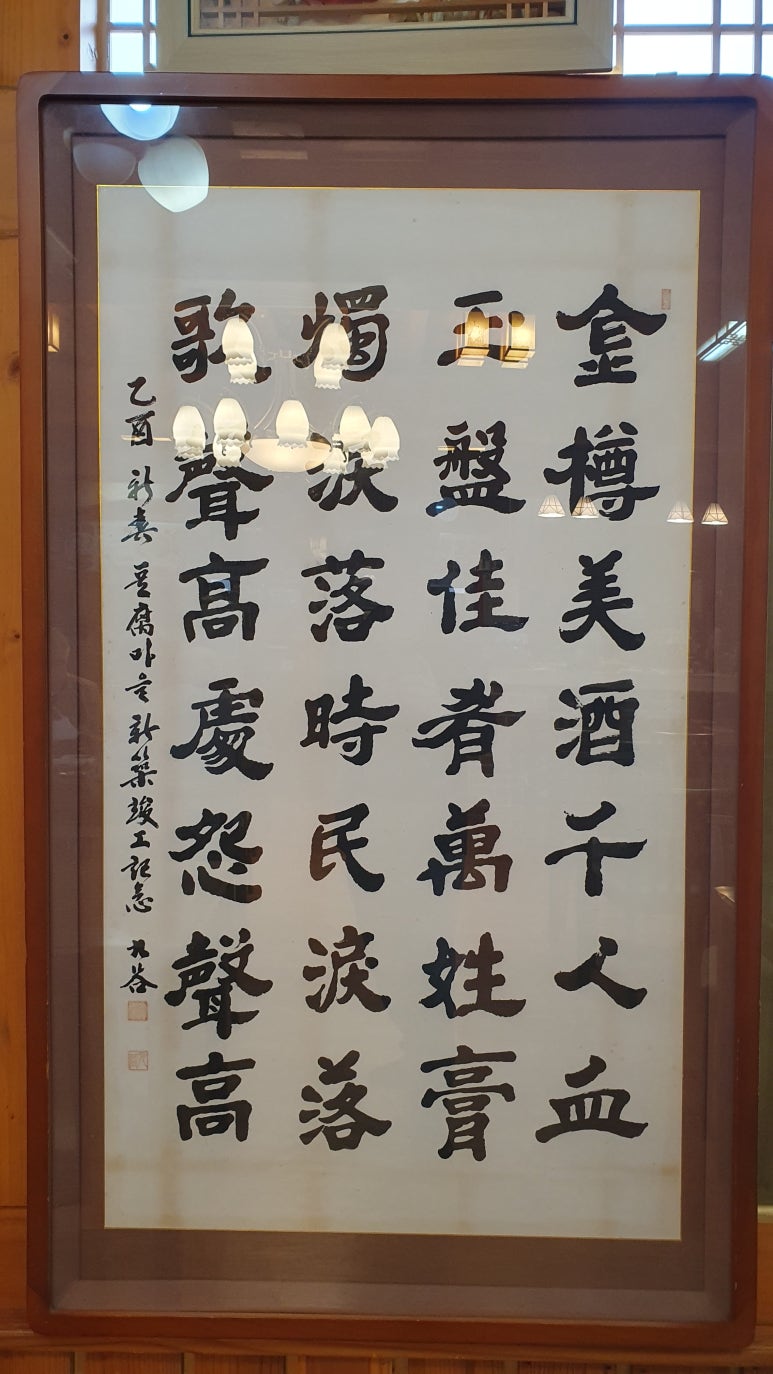 金樽美酒千人血
玉盤佳者萬姓膏
燭淚落時民淚落
歌聲髙處怨聲高
乙酉 新春 豆腐마을 新築竣工記念 谷